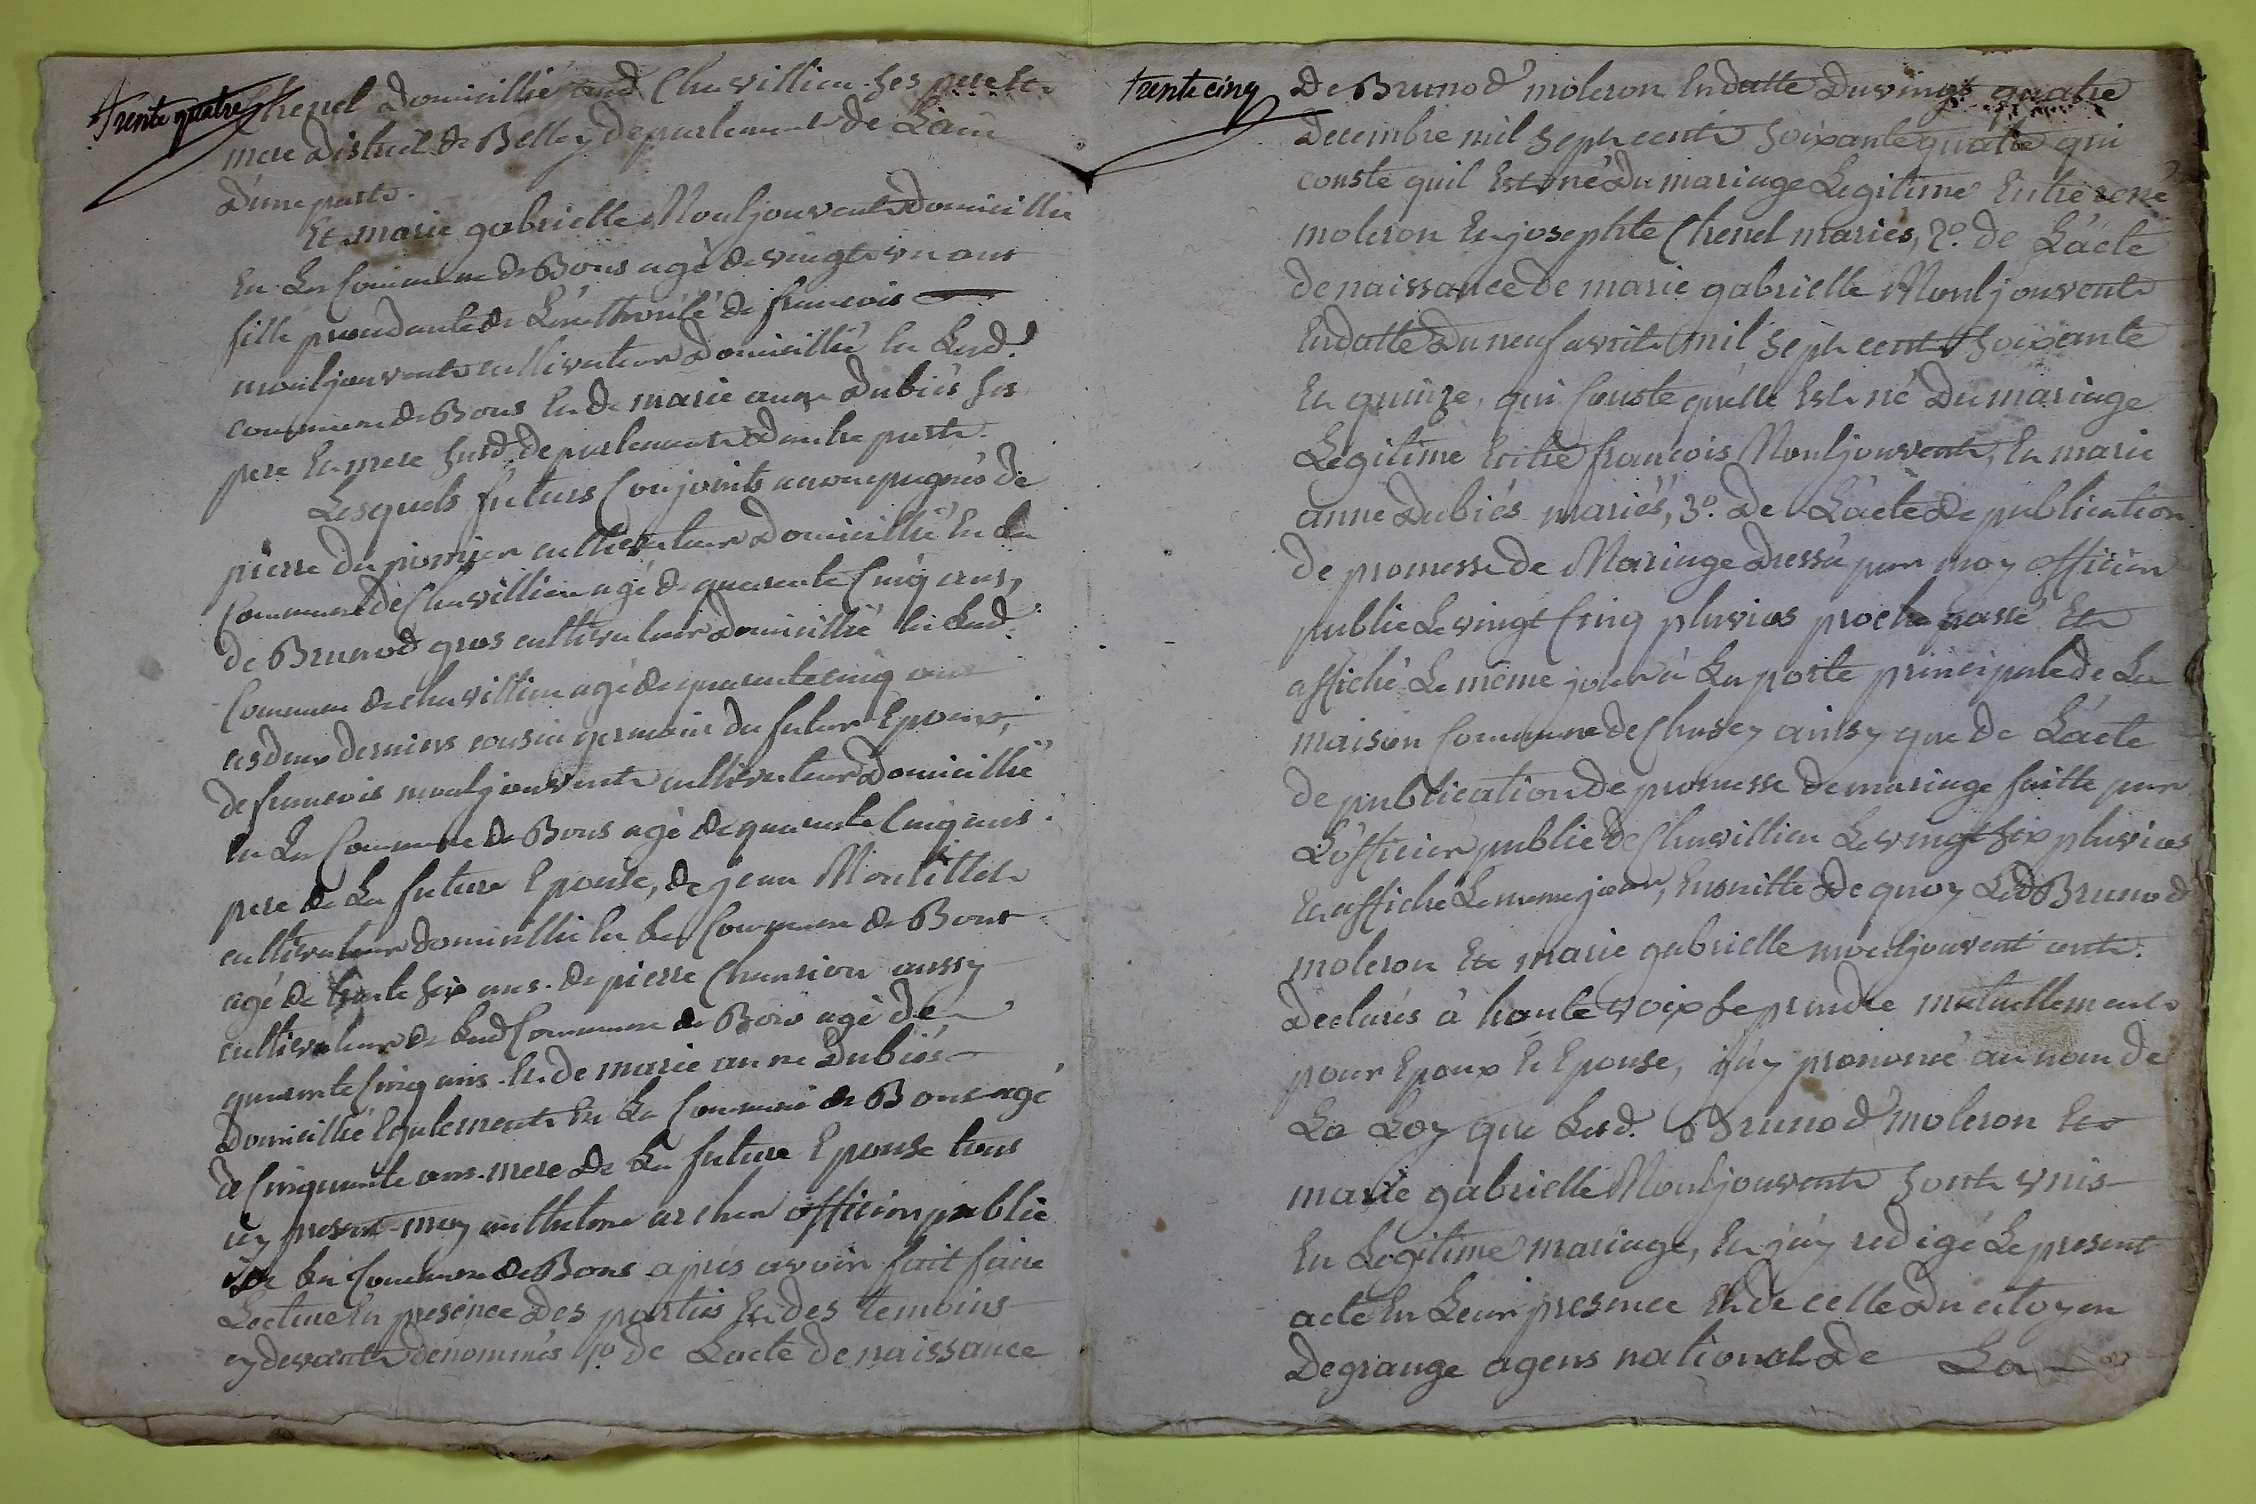 Trente quatre
Chenel domicillié aud Chavillieu ses pere et
mere district de Belley departement de Lain
Dune part.
Et marie gabrielle Montjouvent domicillié
en La Commune de Bons agé de vingt un ans
fille procedante de Lauthorité de francois
montjouvent cultivateur domicillié en Lad.
commune de Bons et de marie anne Dubiés ses
pere et mere susd. departement dautre part.
Lesquels futurs Conjoints accompagnés de
pierre du pionier cultivateur domicillié en la
Commune de Chavillieu agé de quarente Cinq ans,
de Brunod gros cultivateur domicillié en Lad.
Commune de chavillieu agé de quarente cinq ans
ces deux derniers cousin germain du futur Epoux,
de francois montjouvent cultivateur domicillié
en La Commune de Bons agé de quarente Cinq ans
pere de La future Epouse, de jean Montillet
cultivateur domicillié en La Commune de Bons
agé de trente six ans. de pierre Chansion aussy
cultivateur de Lad Commune de Bons agé de
quarente Cinq ans. Et de marie anne Dubiés
domicillié Egalement en La Commune de Bons agé
de Cinquante ans. mere de La future Epouse tous
icy present moy anthelme archer officier public
de La Commune de Bons apres avoir fait faire
Lecture en presence des parties et des temoins
cy devant dénommés 1o de Lacte de naissance
trente cinq
de Brunod moleron en datte du vingt quatre
decembre mil sept cent soixante quatre qui
conste quil est né du mariage Legitime entre rené
moleron et josephte Chenel mariés, 2o. de Lácte
de naissance de marie gabrielle Montjouvent
en datte du neuf avril mil sept cent soixante
et quinze, qui Conste quelle est né du mariage
Legitime entre francois Montjouvent, et marie
anne dubiés mariés, 3o. de Lácte de publication
de promesse de Mariage dressé par moy officier
public Le vingt Cinq pluvios proche passé et
affiché Le même jour à La porte principale de La
maison Commune de Chasey ainsy que de Lácte
de publication de promesse de mariage faitte par
Lofficier public de Chavillieu Le vingt six pluvios
et affiché Le meme jour, ensuitte de quoy Led Brunod
moleron et marie gabrielle montjouvent ont
declarés à haute voix se prendre mutuellement
pour Epoux et Epouse, jáy prononcé au nom de
La Loy que Lesd. Brunod moleron et
marie gabrielle Montjouvent sont unis
en Legitime mariage, et jáy redigé Le present
acte en Leur presence et de celle du citoyen
Degrange agens national de La